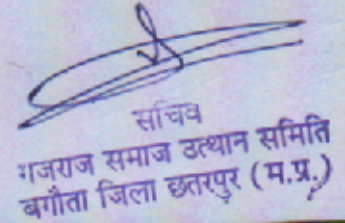 सचिव
गजराज समाज उत्थान समिति
बगौता जिला छतरपुर (म.प्र.)